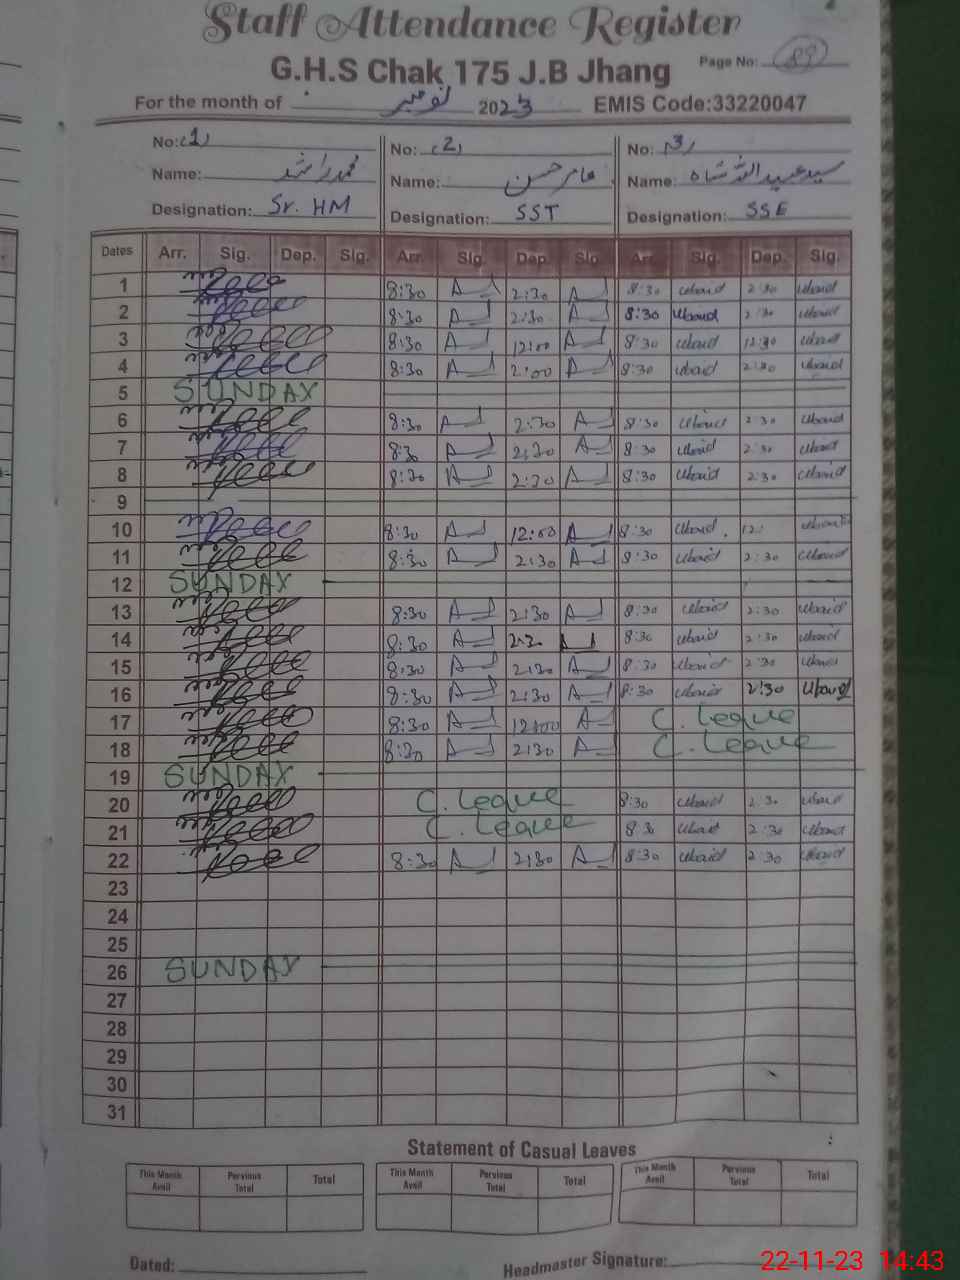 Staff Attendance Register
G.H.S Chak 175 J.B Jhang Page No: 89
For the month of نومبر 2023 EMIS Code:33220047
No: (1) No: (2) No: (3)
Name: محمد راشد Name: عامر حسن Name: سید عبید اللہ شاہ
Designation: Sr. HM Designation: SST Designation: SSE
Dates Arr. Sig. Dep. Sig. Arr. Sig. Dep. Sig. Arr. Sig. Dep. Sig.
1 8:30 2:30 8:30 Ubaid 2:30 Ubaid
2 8:30 2:30 8:30 Ubaid 2:30 Ubaid
3 8:30 12:00 8:30 Ubaid 12:30 Ubaid
4 8:30 2:00 8:30 Ubaid 2:30 Ubaid
5 SUNDAY
6 8:30 2:30 8:30 Ubaid 2:30 Ubaid
7 8:30 2:30 8:30 Ubaid 2:30 Ubaid
8 8:30 2:30 8:30 Ubaid 2:30 Ubaid
9
10 8:30 12:00 8:30 Ubaid 12: Ubaid
11 8:30 2:30 8:30 Ubaid 2:30 Ubaid
12 SUNDAY
13 8:30 2:30 8:30 Ubaid 2:30 Ubaid
14 8:30 2:30 8:30 Ubaid 2:30 Ubaid
15 8:30 2:30 8:30 Ubaid 2:30 Ubaid
16 8:30 2:30 8:30 Ubaid 2:30 Ubaid
17 8:30 12:00 C. Leave
18 8:30 2:30 C. Leave
19 SUNDAY
20 C. Leave 8:30 Ubaid 2:30 Ubaid
21 C. Leave 8:30 Ubaid 2:30 Ubaid
22 8:30 2:30 8:30 Ubaid 2:30 Ubaid
23
24
25
26 SUNDAY
27
28
29
30
31
Statement of Casual Leaves
This Month Avail Pervious Total Total This Month Avail Pervious Total Total This Month Avail Pervious Total Total
Dated: Headmaster Signature:
22-11-23 14:43